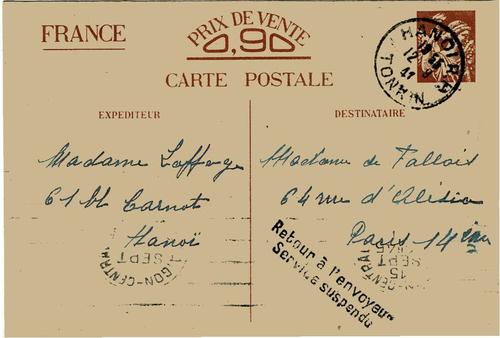 FRANCE
PRIX DE VENTE
0,90
CARTE POSTALE
HANOI R.P
12 - 9
41
TONKIN
EXPEDITEUR
Madame Laffage
61 Bd Carnot
Hanoï
DESTINATAIRE
Madame de Fallois
64 rue d'Alésia
Paris 14 ème
Retour à l'envoyeur
Service suspendu
GON-CENTRA
SEPT
GON-CENTRAL
15
SEPT